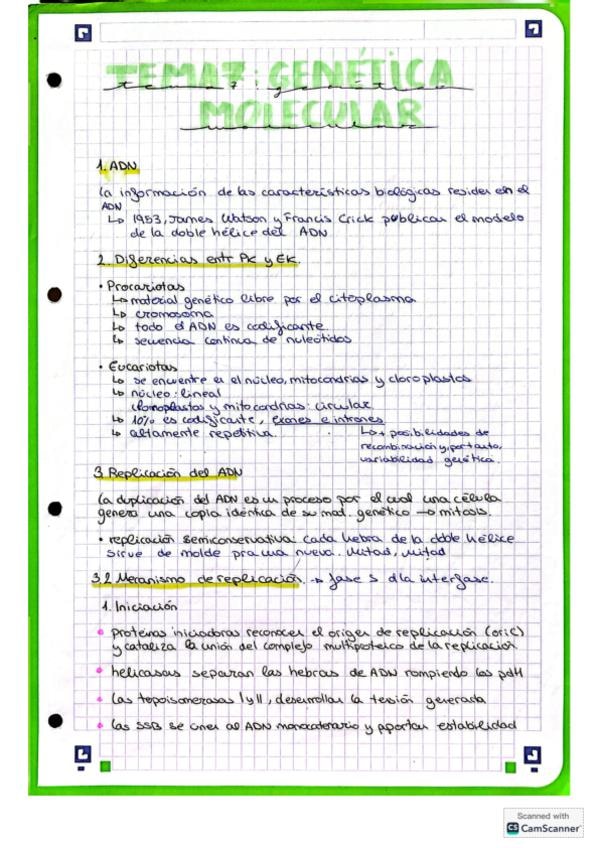 TEMA 7: GENÉTICA
tema 7: genética
MOLECULAR
molecular
1. ADN
La información de las características biológicas resides en el
ADN
↳ 1953, James Watson y Francis Crick publican el modelo
de la doble hélice del ADN
2. Diferencias entr PK y EK.
• Procariotas
↳ material genético libre por el citoplasma
↳ cromosoma
↳ todo el ADN es codificante
↳ secuencia continua de nuleótidos
• Eucariotas
↳ se encuentre en el núcleo, mitocondrias y cloroplastos
↳ núcleo: lineal
cloroplastos y mitocondrias: circular
↳ 10% es codificante, exones e intrones
↳ altamente repetitiva.
↳ + posibilidades de
recombinación y, por tanto,
variabilidad genética.
3. Replicación del ADN
La duplicación del ADN es un proceso por el cual una célula
genera una copia idéntica de su mat. genético → mitosis.
• replicación semiconservativa: cada hebra de la doble hélice
sirve de molde pra una nueva. Mitad, mitad
3.2 Mecanismo de replicación. → fase S d la interfase.
1. Iniciación
• proteínas iniciadoras reconocen el origen de replicación (oriC)
y cataliza la unión del complejo multiproteico de la replicación.
• helicasas separan las hebras de ADN rompiendo los pdH
• Las topoisomerasas I y II, desenrollan la tensión generada
• las SSB se unen al ADN monocatenario y aportan estabilidad
Scanned with
CS CamScanner